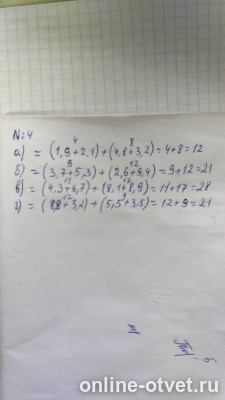 №4
а) = (1,9+2,1)+(4,8+3,2)=4+8=12
4 8
б) = (3,7+5,3)+(2,6+9,4)=9+12=21
9 12
в) = (4,3+6,7)+(8,1+8,9)=11+17=28
11 17
г) = (8,8+3,2)+(5,5+3,5)=12+9=21
12 9
online-otvet.ru